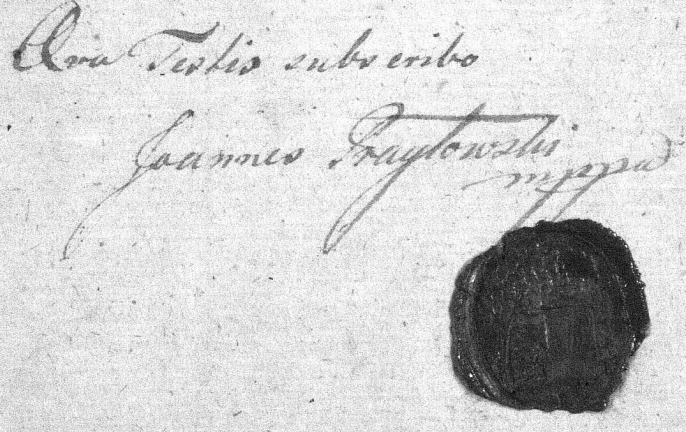 Qva Testis subscribo
Joannes Praytowski
mppa